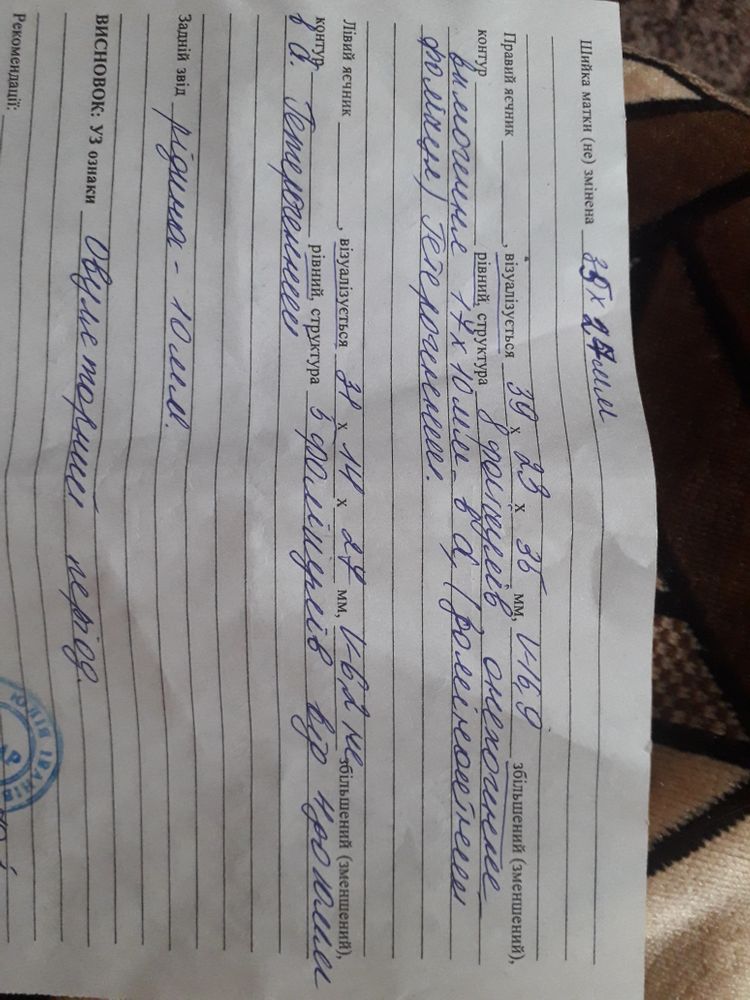 Шийка матки (не) змінена 35 х 27 мм
Правий яєчник , візуалізується 39 х 23 х 35 мм, V-16,9 збільшений (зменшений),
контур рівний, структура 8 фолікулів
17 х 10 мм - в d,
фолікул) Гетерогенний.
Лівий яєчник , візуалізується 31 х 14 х 27 мм, V-6,2 не збільшений (зменшений),
контур рівний, структура 5 фолікулів до 10 мм
в d. Гетерогенний
Задній звід рідина - 10 мм.
ВИСНОВОК: УЗ ознаки Овуляторний період.
Рекомендації:
ЮЛІЯ ІВАНІВ